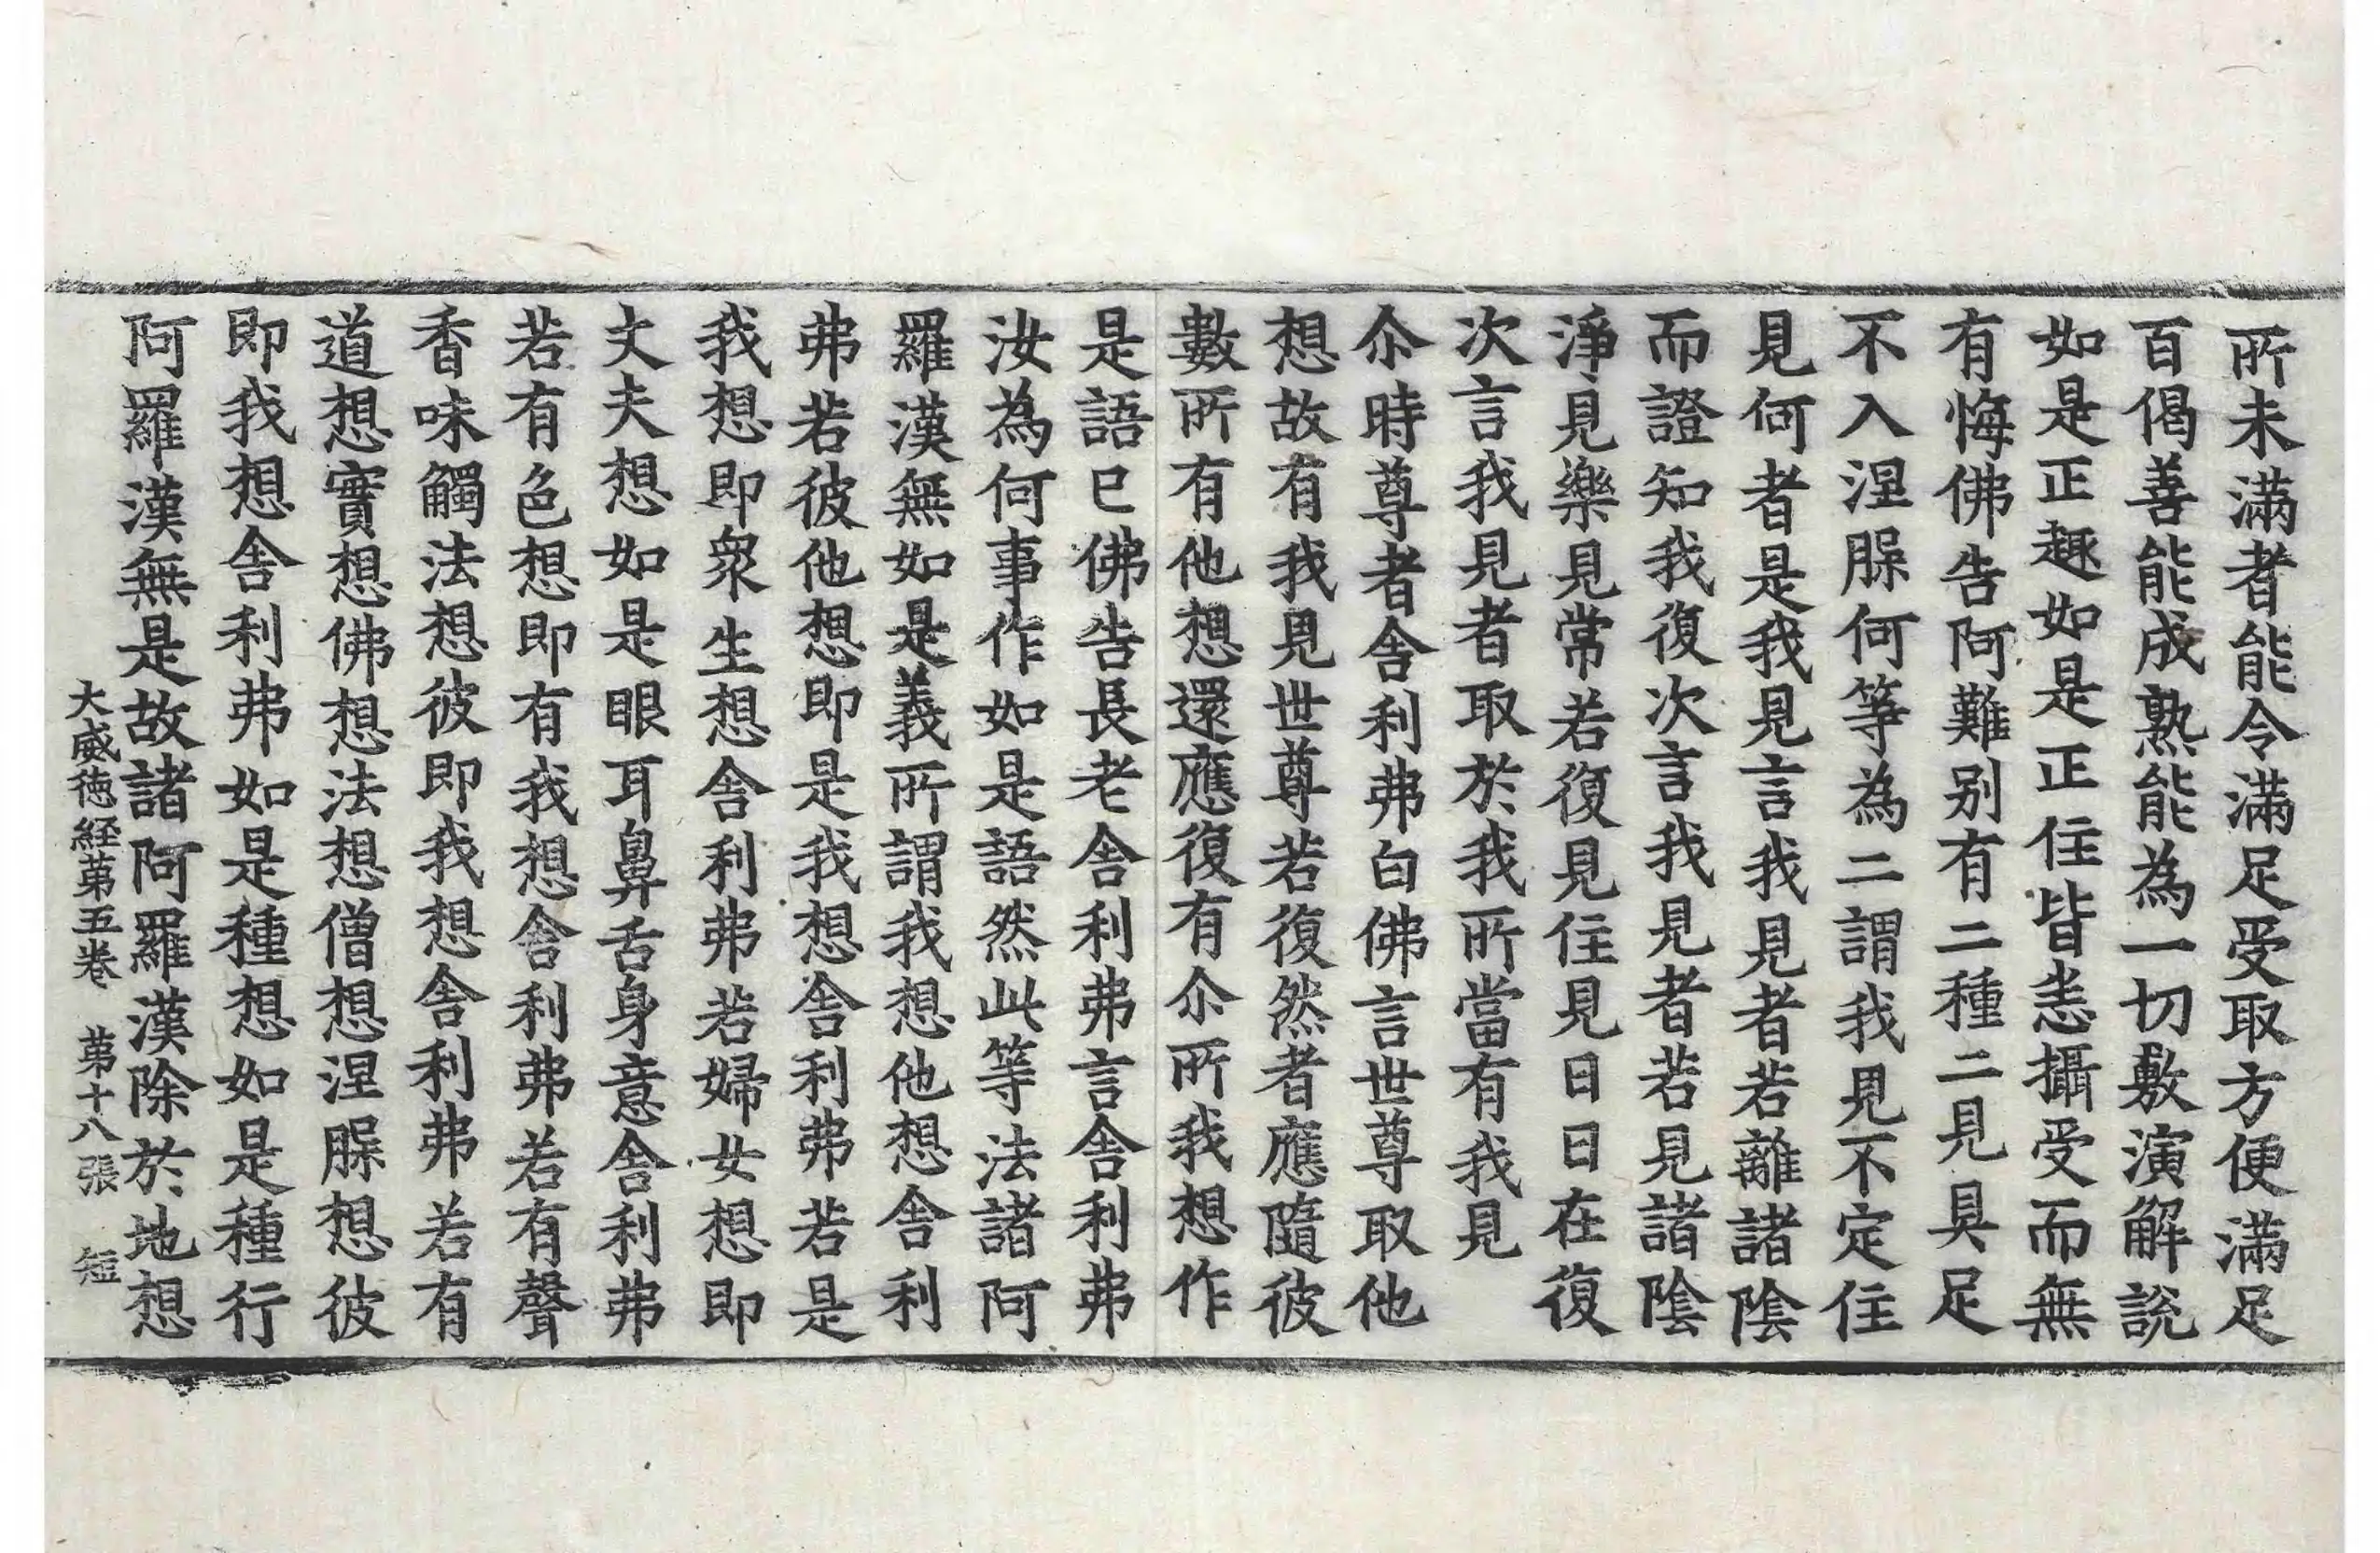 所未滿者能令滿足受取方便滿足
百偈善能成熟能為一切敷演解說
如是正趣如是正住皆恙攝受而無
有悔佛告阿難别有二種二見具足
不入涅脲何等為二謂我見不定住
見何者是我見言我見者若離諸陰
而證知我復次言我見者若見諸陰
淨見樂見常若復見住見日日在復
次言我見者取於我所當有我見
尒時尊者舍利弗白佛言世尊取他
想故有我見世尊若復然者應隨彼
數所有他想還應復有尒所我想作
是語已佛告長老舍利弗言舍利弗
汝為何事作如是語然此等法諸阿
羅漢無如是義所謂我想他想舍利
弗若彼他想即是我想舍利弗若是
我想即衆生想舍利弗若婦女想即
丈夫想如是眼耳鼻舌身意舍利弗
若有色想即有我想舍利弗若有聲
香味觸法想彼即我想舍利弗若有
道想實想佛想法想僧想涅脲想彼
即我想舍利弗如是種想如是種行
阿羅漢無是故諸阿羅漢除於地想
大威徳経苐五卷 苐十八張 短